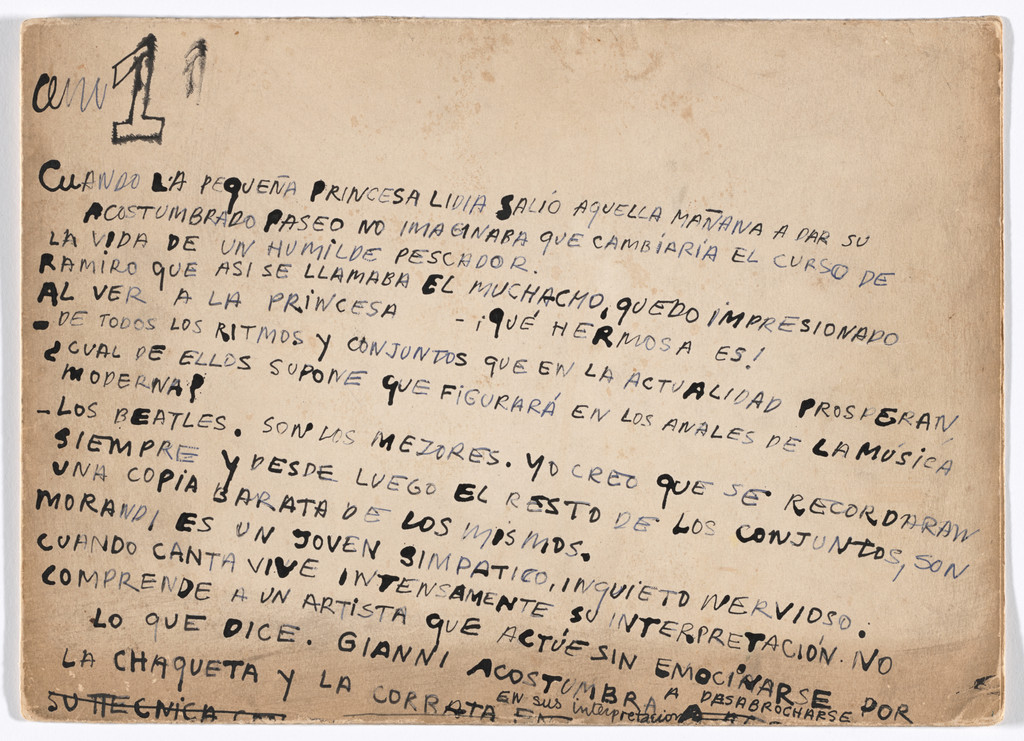 1 1
CUANDO LA PEQUEÑA PRINCESA LIDIA SALIÓ AQUELLA MAÑANA A DAR SU
ACOSTUMBRADO PASEO NO IMAGINABA QUE CAMBÍARÍA EL CURSO DE
LA VIDA DE UN HUMILDE PESCADOR.
RAMIRO QUE ASI SE LLAMABA EL MUCHACHO, QUEDO IMPRESIONADO
AL VER A LA PRINCESA - ¡QUÉ HERMOSA ES!
- DE TODOS LOS RITMOS Y CONJUNTOS QUE EN LA ACTUALIDAD PROSPERAN
¿CUAL DE ELLOS SUPONE QUE FIGURARÁ EN LOS ANALES DE LA MÚSICA
MODERNA?
- LOS BEATLES. SON LOS MEZORES. YO CREO QUE SE RECORDARAN
SIEMPRE Y DESDE LUEGO EL RESTO DE LOS CONJUNTOS, SON
UNA COPIA BARATA DE LOS MISMOS.
MORANDI ES UN JOVEN SIMPATICO, INQUIETO NERVIOSO.
CUANDO CANTA VIVE INTENSAMENTE SU INTERPRETACIÓN. NO
COMPRENDE A UN ARTISTA QUE ACTÚE SIN EMOCINARSE POR
LO QUE DICE. GIANNI ACOSTUMBRA A DESABROCHARSE
LA CHAQUETA Y LA CORRATA EN sus interpretacion
SU TECNICA